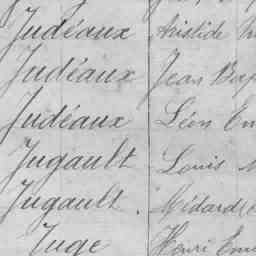 Judéaux Aristide
Judéaux Jean Bap
Judéaux Léon Em
Jugault Louis
Jugault. Médard
Juge Henri Emi